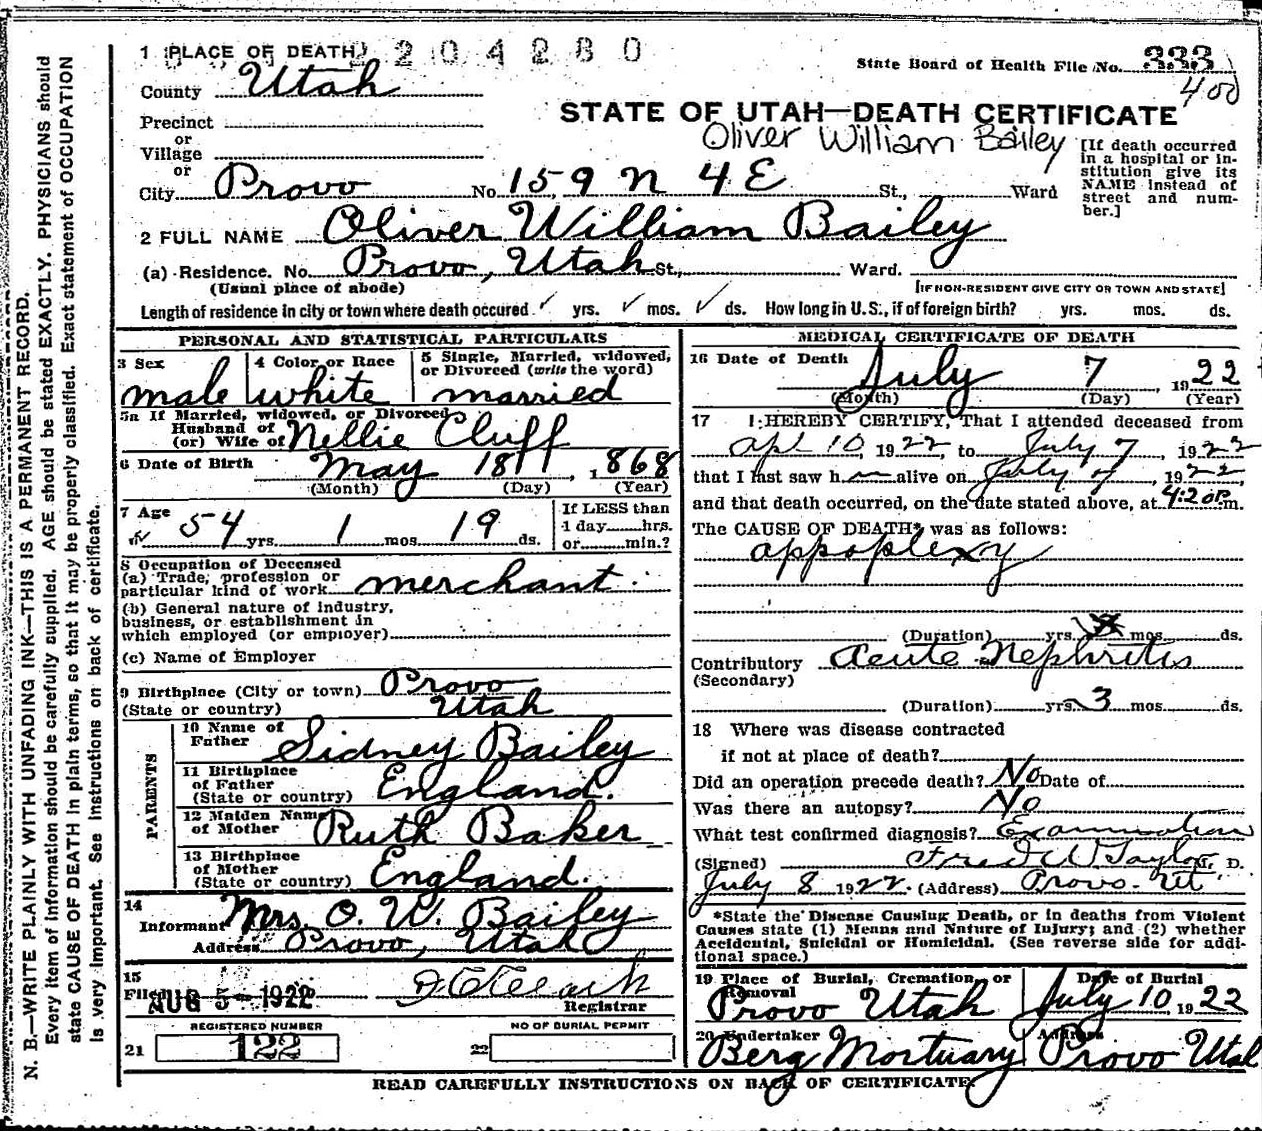 N. B.—WRITE PLAINLY WITH UNFADING INK—THIS IS A PERMANENT RECORD.
Every item of information should be carefully supplied. AGE should be stated EXACTLY. PHYSICIANS should
state CAUSE OF DEATH in plain terms, so that it may be properly classified. Exact statement of OCCUPATION
is very important. See instructions on back of certificate.
1 PLACE OF DEATH 2204280
State Board of Health File No. 333
400
County Utah
STATE OF UTAH—DEATH CERTIFICATE
Precinct
Oliver William Bailey
or
Village
or
City Provo No. 159 N 4 E St., Ward
[If death occurred
in a hospital or in-
stitution give its
NAME instead of
street and num-
ber.]
2 FULL NAME Oliver William Bailey
(a) Residence. No. Provo, Utah St., Ward.
(Usual place of abode) [IF NON-RESIDENT GIVE CITY OR TOWN AND STATE]
Length of residence in city or town where death occured ✓ yrs. ✓ mos. ✓ ds. How long in U. S., if of foreign birth? yrs. mos. ds.
PERSONAL AND STATISTICAL PARTICULARS
3 Sex male
4 Color or Race white
5 Single, Married, widowed,
or Divorced (write the word)
married
5a If Married, widowed, or Divorced
Husband of
(or) Wife of Nellie Cluff
6 Date of Birth May 18, 1868
(Month) (Day) (Year)
7 Age 54 yrs. 1 mos. 19 ds.
If LESS than
1 day hrs.
or min.?
8 Occupation of Deceased
(a) Trade, profession or
particular kind of work merchant
(b) General nature of industry,
business, or establishment in
which employed (or employer)
(c) Name of Employer
9 Birthplace (City or town) Provo
(State or country) Utah
PARENTS
10 Name of
Father Sidney Bailey
11 Birthplace
of Father
(State or country) England.
12 Maiden Name
of Mother Ruth Baker
13 Birthplace
of Mother
(State or country) England.
14
Informant Mrs. O. W. Bailey
Address Provo, Utah
15
Filed AUG 5 - 1922
Registrar
REGISTERED NUMBER
21 122
NO OF BURIAL PERMIT
22
MEDICAL CERTIFICATE OF DEATH
16 Date of Death July 7, 1922
(Month) (Day) (Year)
17 I HEREBY CERTIFY, That I attended deceased from
Apl 10, 1922, to July 7, 1922
that I last saw h alive on July 7, 1922,
and that death occurred, on the date stated above, at 4:20 p. m.
The CAUSE OF DEATH* was as follows:
appoplexy
(Duration) yrs. mos. ds.
Contributory Acute Nephritis
(Secondary)
(Duration) yrs. 3 mos. ds.
18 Where was disease contracted
if not at place of death?
Did an operation precede death? No Date of
Was there an autopsy? No
What test confirmed diagnosis? Examination
(Signed) Fred W Taylor, D.
July 8 1922. (Address) Provo. Ut.
*State the Disease Causing Death, or in deaths from Violent
Causes state (1) Means and Nature of Injury; and (2) whether
Accidental, Suicidal or Homicidal. (See reverse side for addi-
tional space.)
19 Place of Burial, Cremation, or
Removal
Provo Utah
Date of Burial
July 10, 1922
20 Undertaker
Berg Mortuary
Address
Provo Utah
READ CAREFULLY INSTRUCTIONS ON BACK OF CERTIFICATE.